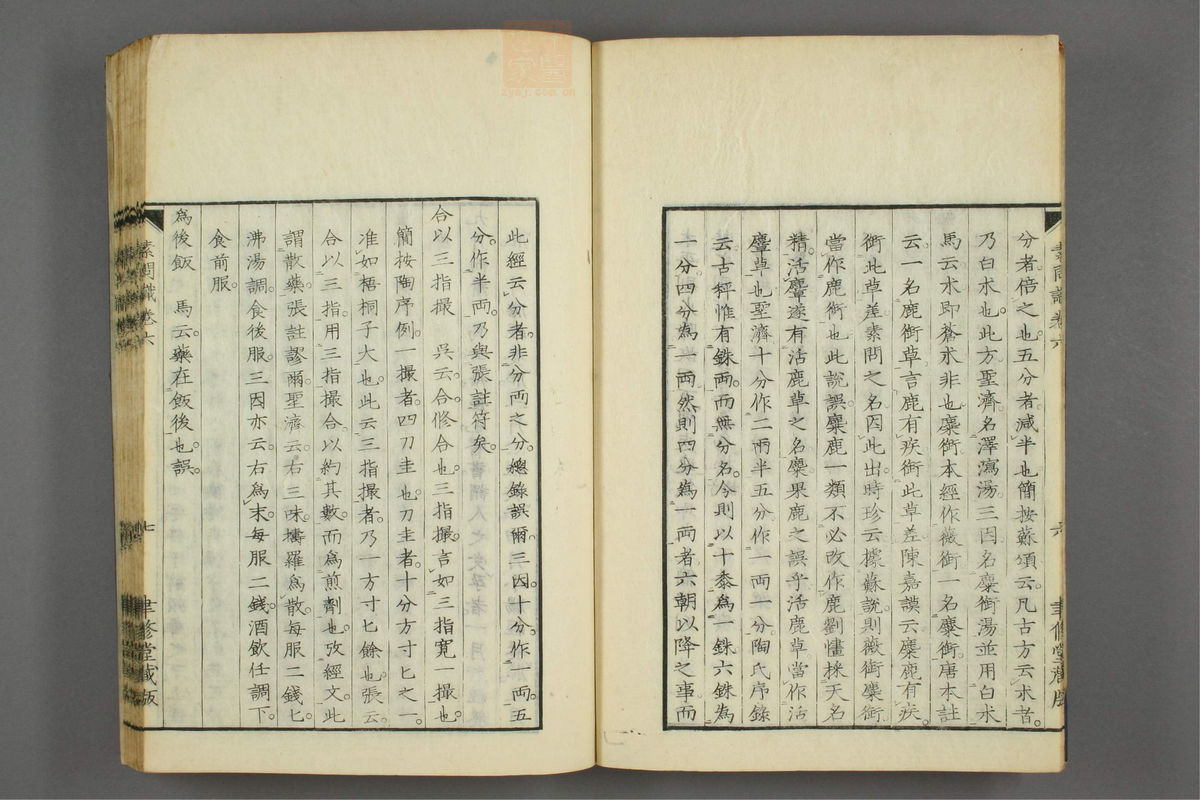 分者。倍之也。五分者。減半也。簡按蘇頌云。凡古方云朮者。
乃白朮也。此方聖濟名澤瀉湯。三因名麋銜湯。並用白朮
馬云。朮即蒼朮。非也。麋銜本經作薇銜。一名麋銜。唐本註
云。一名鹿銜草。言鹿有疾。銜此草差。陳嘉謨云。麋鹿有疾。
銜此草差。素問之名因此出。時珍云。據蘇說。則薇銜麋銜。
當作鹿銜也。此說誤。麋鹿一類。不必改作鹿。劉𢣷採天名
精。活麞。遂有活鹿草之名。麋果鹿之誤乎。活鹿草當作活
麞草也。聖濟十分作二兩半。五分作一兩一分。陶氏序錄
云。古秤惟有銖兩。而無分名。今則以十黍為一銖。六銖為
一分。四分為一兩。然則四分為一兩者。六朝以降之事。而
此經云分者。非分兩之分。總錄誤爾。三因。十分作一兩。五
分作半兩。乃與張註符矣。
合以三指撮 吳云。合。修合也。三指撮。言如三指寬一撮也
簡按陶序例。一撮者。四刀圭也。刀圭者。十分方寸匕之一。
准如梧桐子大也。此云三指撮者。乃一方寸匕餘也。張云。
合以三指。用三指撮合。以約其數。而為煎劑也。攷經文。此
謂散藥。張註謬爾。聖濟云。右三味。擣羅為散。每服二錢匕。
沸湯調。食後服。三因亦云。右為末。每服二錢。酒飲任調下。
食前服。
為後飯 馬云。藥在飯後也。誤。
素問識卷六
七
聿修堂藏版